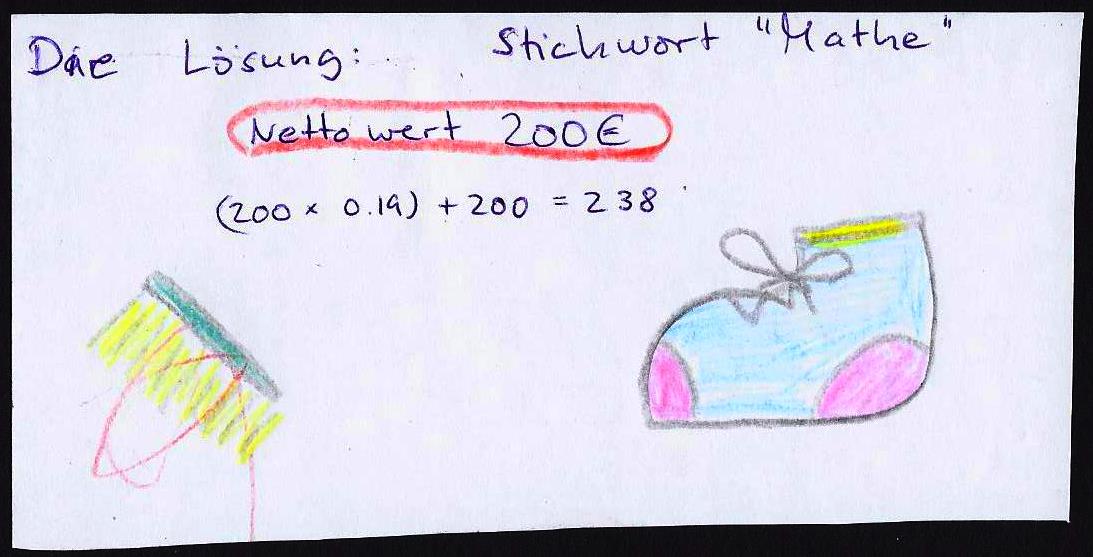 Die Lösung: Stichwort "Mathe"
Netto wert 200€
(200 x 0.19) + 200 = 238